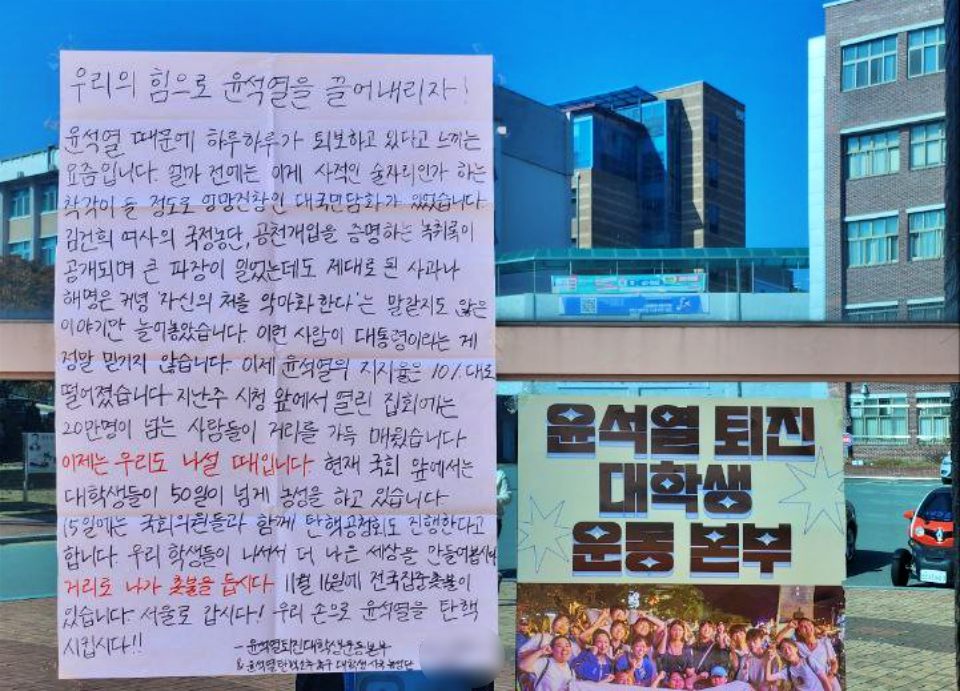 우리의 힘으로 윤석열을 끌어내리자!
윤석열 때문에 하루하루가 퇴보하고 있다고 느끼는
요즘입니다. 얼마 전에는 이게 사적인 술자리인가 하는
착각이 들 정도로 엉망진창인 대국민담화가 있었습니다
김건희 여사의 국정농단, 공천개입을 증명하는 녹취록이
공개되며 큰 파장이 일었는데도 제대로 된 사과나
해명은 커녕 '자신의 처를 악마화한다'는 말같지도 않은
이야기만 늘어놓았습니다. 이런 사람이 대통령이라는 게
정말 믿기지 않습니다. 이제 윤석열의 지지율은 10%대로
떨어졌습니다. 지난주 시청 앞에서 열린 집회에는
20만명이 넘는 사람들이 거리를 가득 매웠습니다
이제는 우리도 나설 때입니다. 현재 국회 앞에서는
대학생들이 50일이 넘게 농성을 하고 있습니다
15일에는 국회의원들과 함께 탄핵공청회도 진행한다고
합니다. 우리 학생들이 나서서 더 나은 세상을 만들어봅시다
거리로 나가 촛불을 듭시다. 11월 16일에 전국집중촛불이
있습니다. 서울로 갑시다! 우리 손으로 윤석열을 탄핵
시킵시다!!
- 윤석열퇴진대학생운동본부
& 윤석열탄핵소추촉구 대학생시국농성단
윤석열 퇴진
대학생
운동 본부